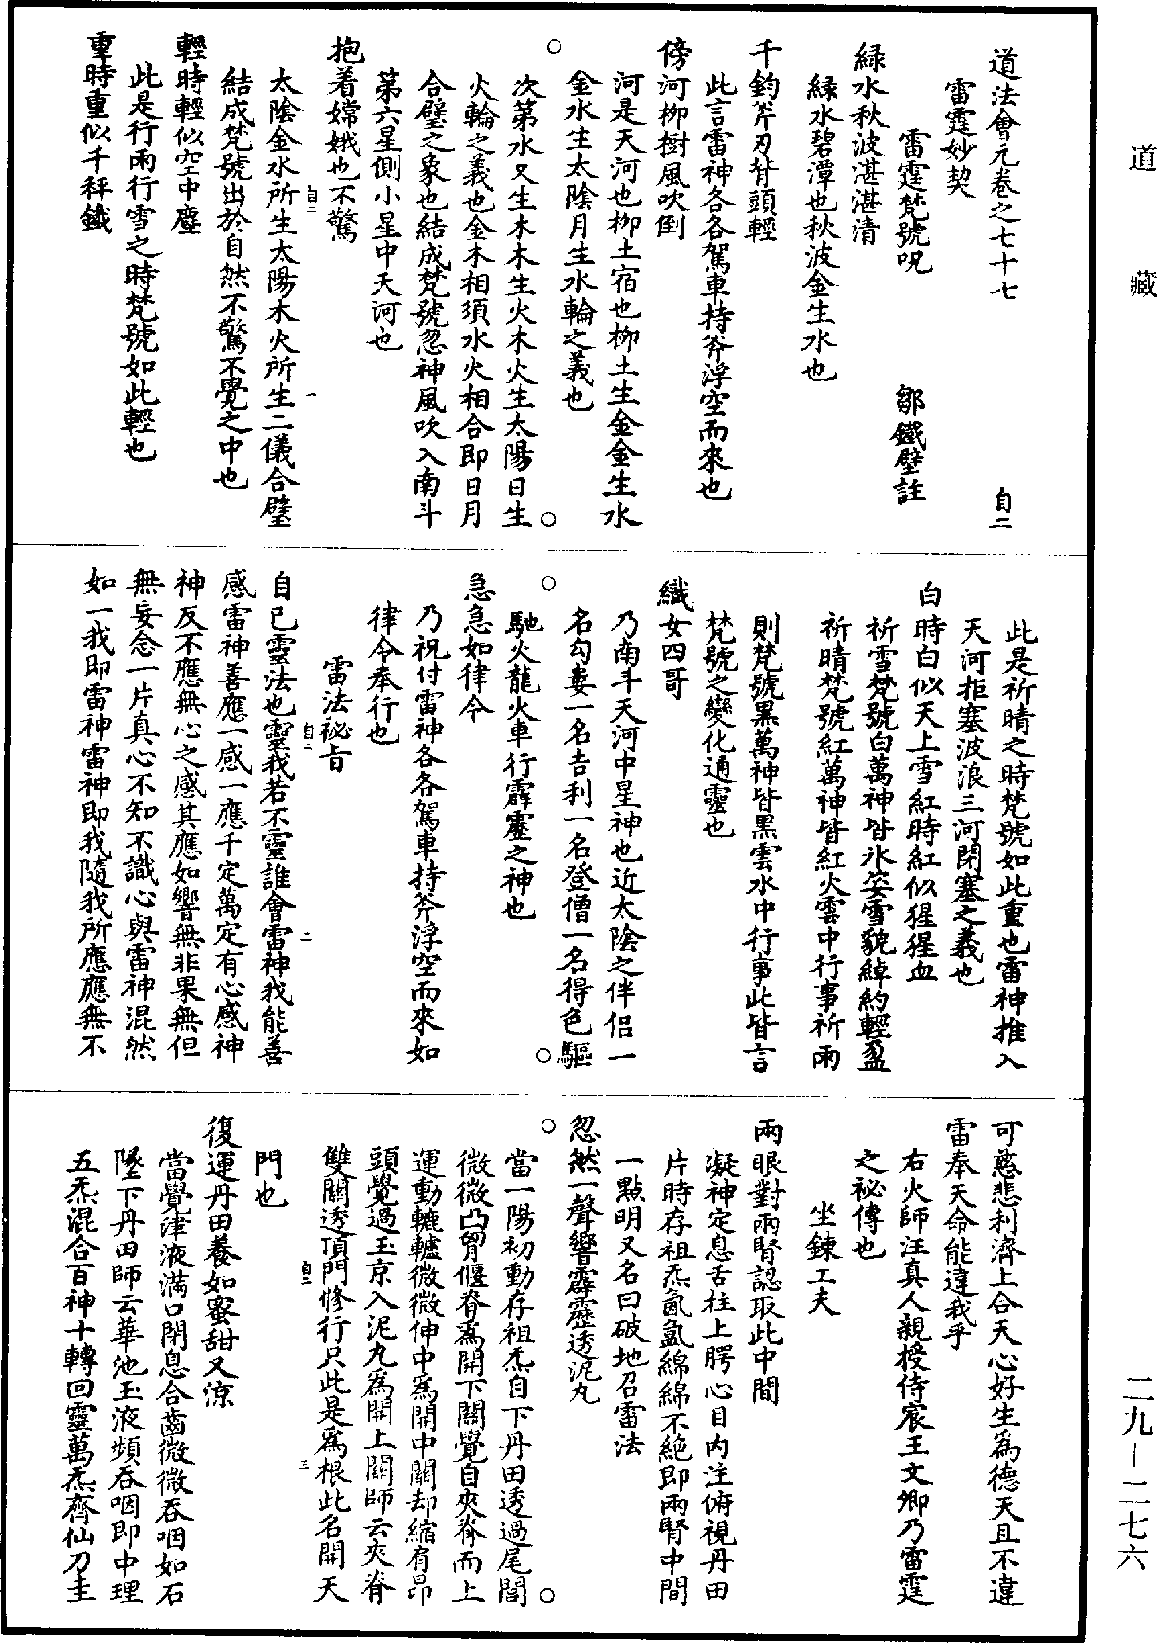 道藏
二九—二七六
道法會元卷之七十七
自二
雷霆妙契
雷霆梵號呪
鄒鐵壁註
綠水秋波湛湛清
綠水碧潭也秋波金生水也
千鈞斧刃背頭輕
此言雷神各各駕車持斧浮空而來也
傍河柳樹風吹倒
河是天河也柳土宿也柳土生金金生水
金水生太陰月生水輪之義也
次第水又生木木生火木火生太陽日生
火輪之義也金木相須水火相合即日月
合璧之象也結成梵號忽神風吹入南斗
第六星側小星中天河也
抱着嫦娥也不驚
太陰金水所生太陽木火所生二儀合璧
結成梵號出於自然不驚不覺之中也
輕時輕似空中塵
此是行雨行雪之時梵號如此輕也
重時重似千秤鐵
此是祈晴之時梵號如此重也雷神推入
天河拒塞波浪三河閉塞之義也
白時白似天上雪紅時紅似猩猩血
祈雪梵號白萬神皆氷姿雪貌綽約輕盈
祈晴梵號紅萬神皆紅火雲中行事祈雨
則梵號黑萬神皆黑雲水中行事此皆言
梵號之變化通靈也
織女四哥
乃南斗天河中星神也近太陰之伴侶一
名勾婁一名吉利一名登僧一名得色驅
馳火龍火車行霹靂之神也
急急如律令
乃祝付雷神各各駕車持斧浮空而來如
律令奉行也
雷法祕旨
自己靈法也靈我若不靈誰會雷神我能善
感雷神善應一感一應千定萬定有心感神
神反不應無心之感其應如響無非果無但
無妄念一片真心不知不識心與雷神混然
如一我即雷神雷神即我隨我所應應無不
可慈悲利濟上合天心好生爲德天且不違
雷奉天命能違我乎
右火師汪真人親授侍宸王文卿乃雷霆
之祕傳也
坐鍊工夫
兩眼對兩腎認取此中間
凝神定息舌柱上腭心目内注俯視丹田
片時存祖炁氤氳綿綿不絕即兩腎中間
一點明又名曰破地召雷法
忽然一聲響霹靂透泥丸
當一陽初動存祖炁自下丹田透過尾閭
微微凸胷偃脊爲開下關覺自夾脊而上
運動轆轤微微伸中爲開中關却縮肩昂
頭覺過玉京入泥丸爲開上關師云夾脊
雙關透頂門修行只此是爲根此名開天
門也
復運丹田養如蜜甜又涼
當覺津液滿口閉息合齒微微吞咽如石
墜下丹田師云華池玉液頻吞咽即中理
五炁混合百神十轉回靈萬炁齊仙刀圭